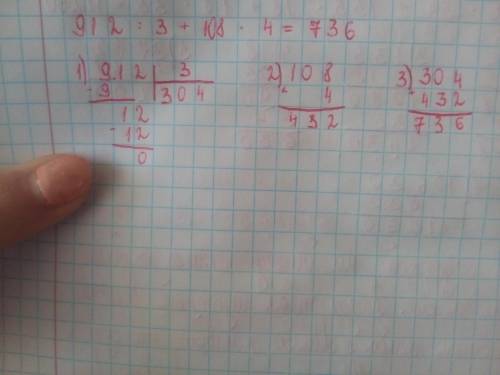 912 : 3 + 108 · 4 = 736
1) 912 | 3 2) 108 3) 304
- 9 | 304 × 4 + 432
12 432 736
- 12
0